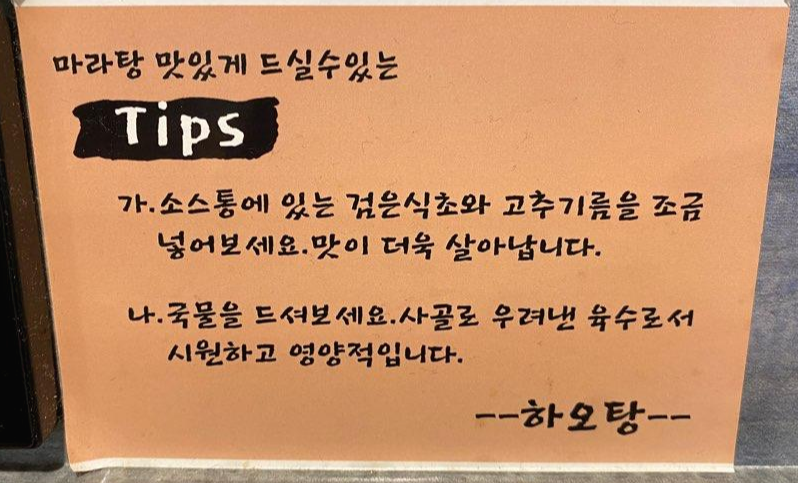 마라탕 맛있게 드실수있는
Tips
가.소스통에 있는 검은식초와 고추기름을 조금
넣어보세요.맛이 더욱 살아납니다.
나.국물을 드셔보세요.사골로 우려낸 육수로서
시원하고 영양적입니다.
--하오탕--